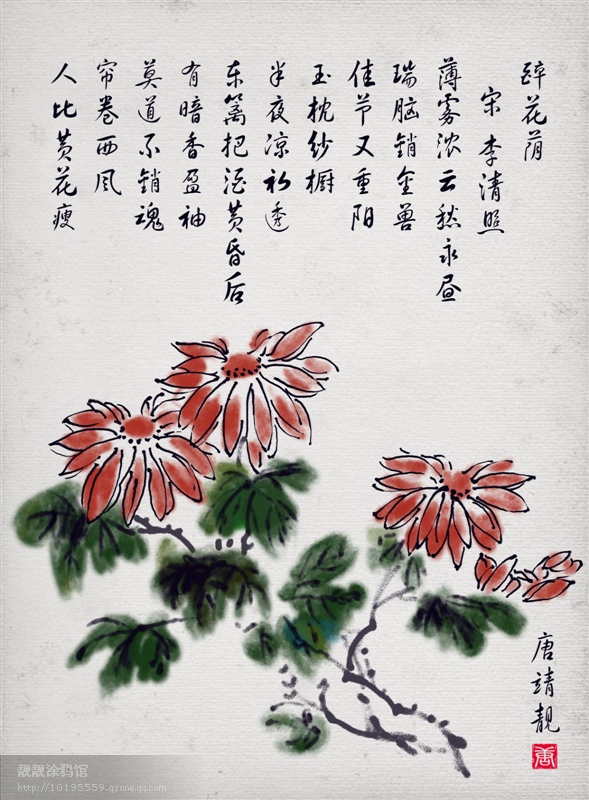 醉花荫
宋 李清照
薄雾浓云愁永昼
瑞脑销金兽
佳节又重阳
玉枕纱橱
半夜凉初透
东篱把酒黄昏后
有暗香盈袖
莫道不销魂
帘卷西风
人比黄花瘦
唐靖靓
唐
靓靓涂鸦馆
http://10195559.qzone.qq.com